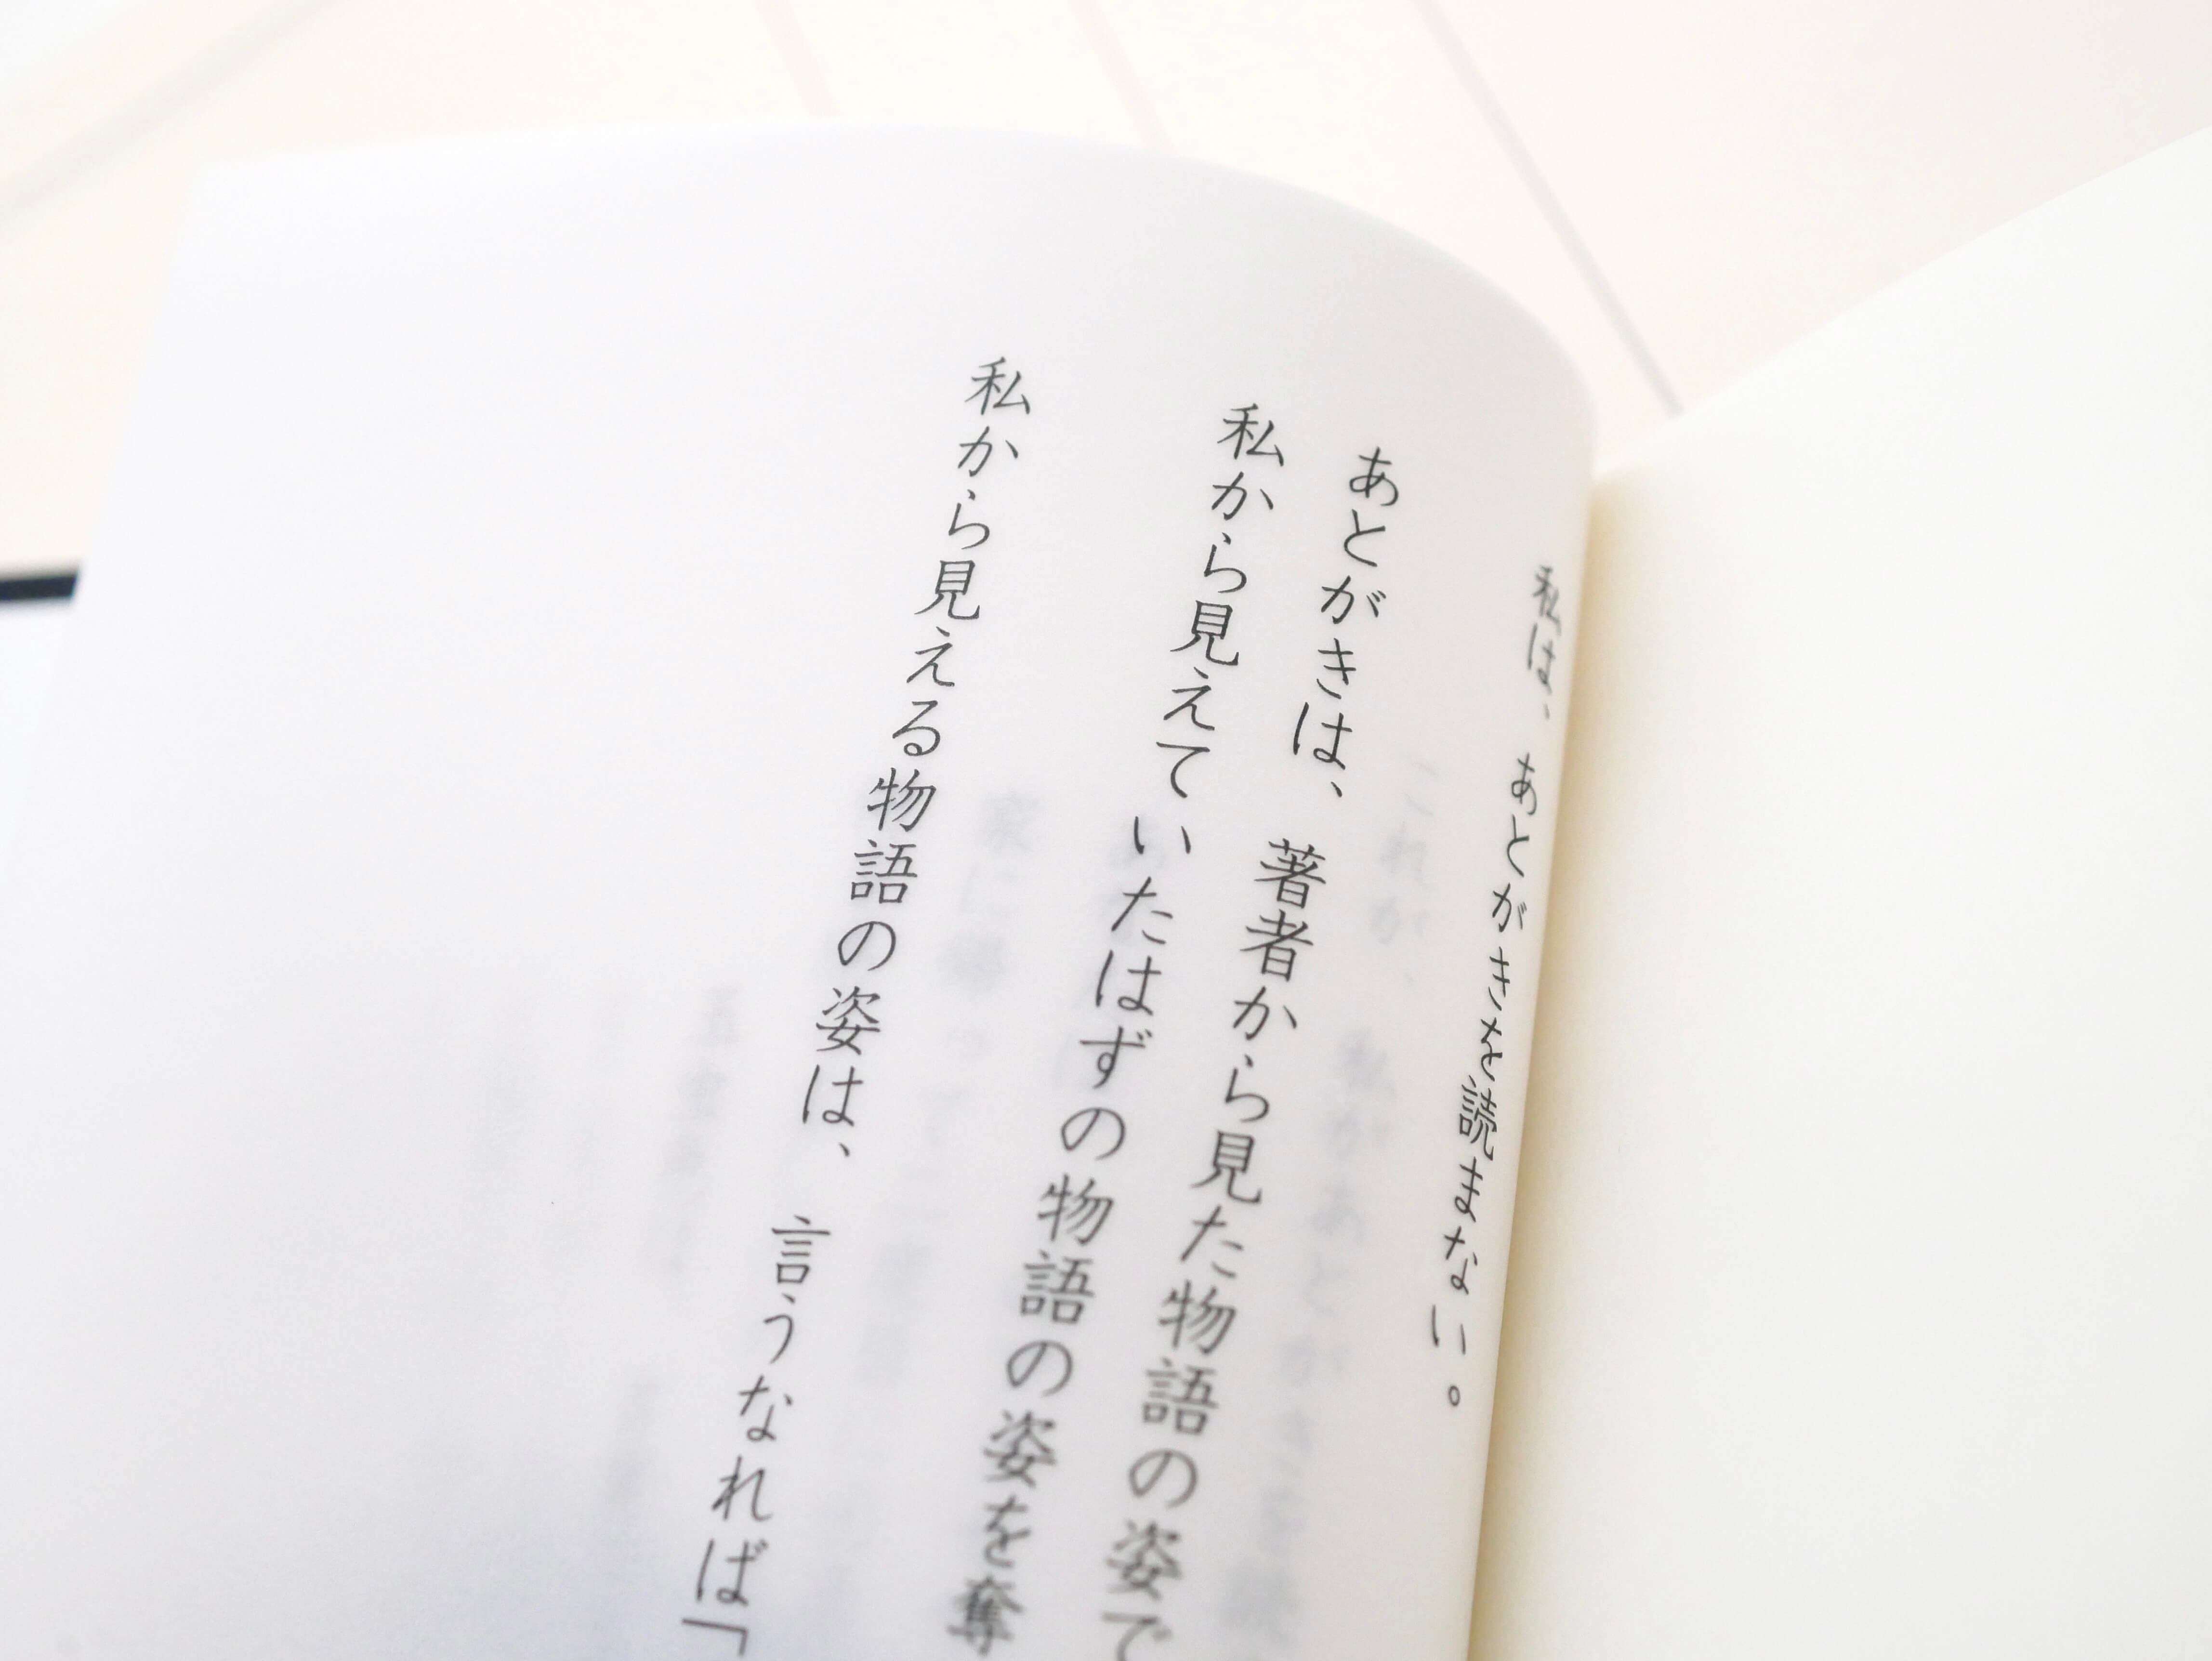 私は、あとがきを読まない。
あとがきは、著者から見た物語の姿で
私から見えていたはずの物語の姿を奪
私から見える物語の姿は、言うなれば「